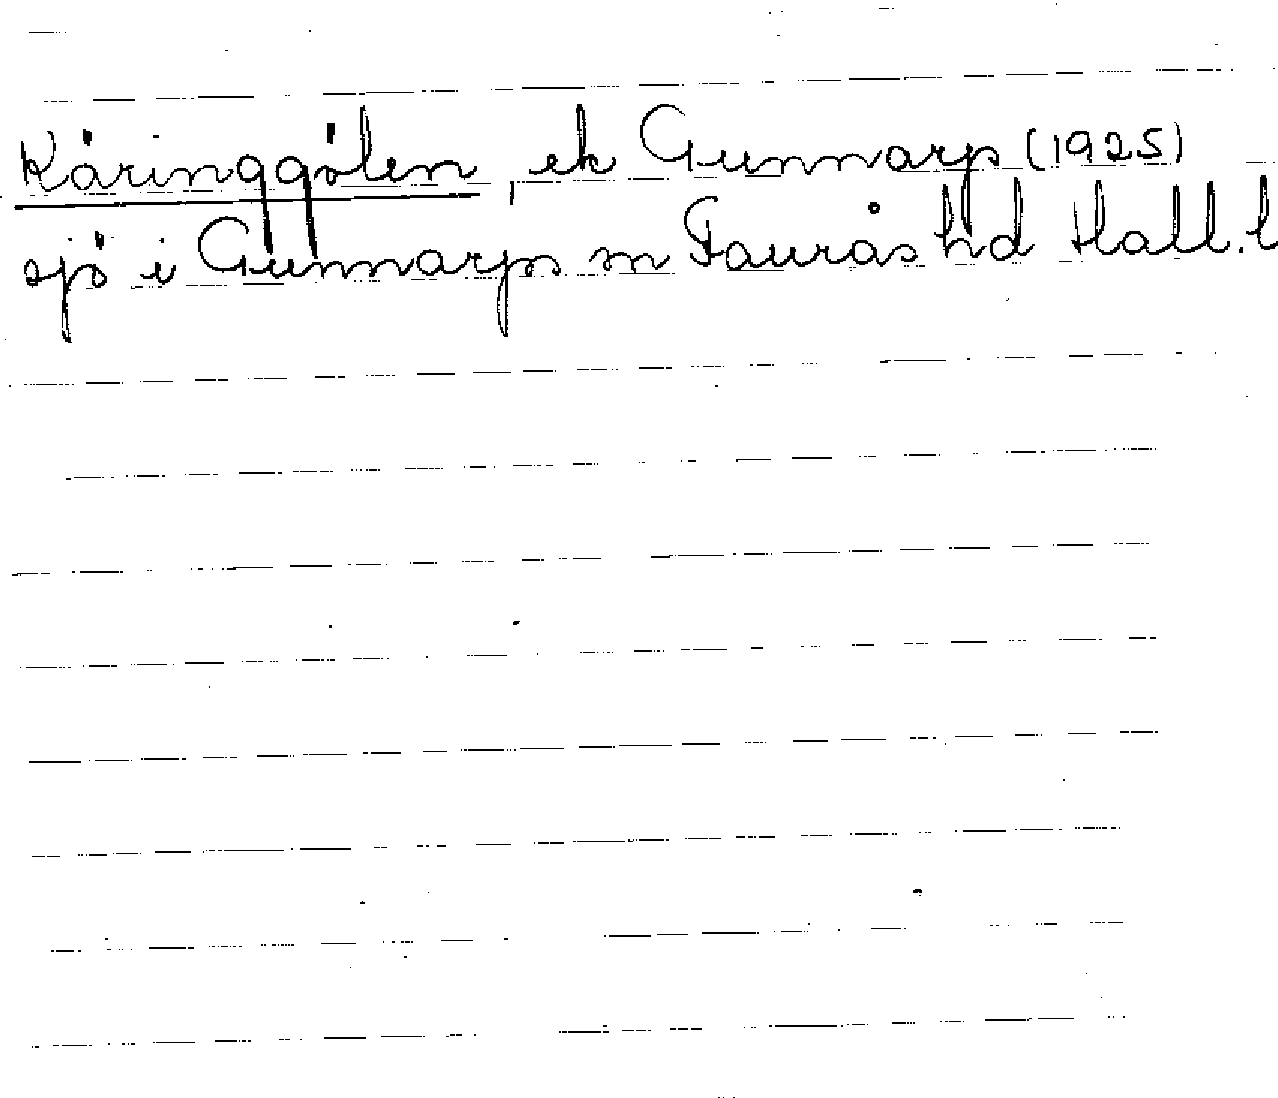 Käringgölen, ek Gunnarp (1925)
sjö i Gunnarps sn Faurås hd Hall. l